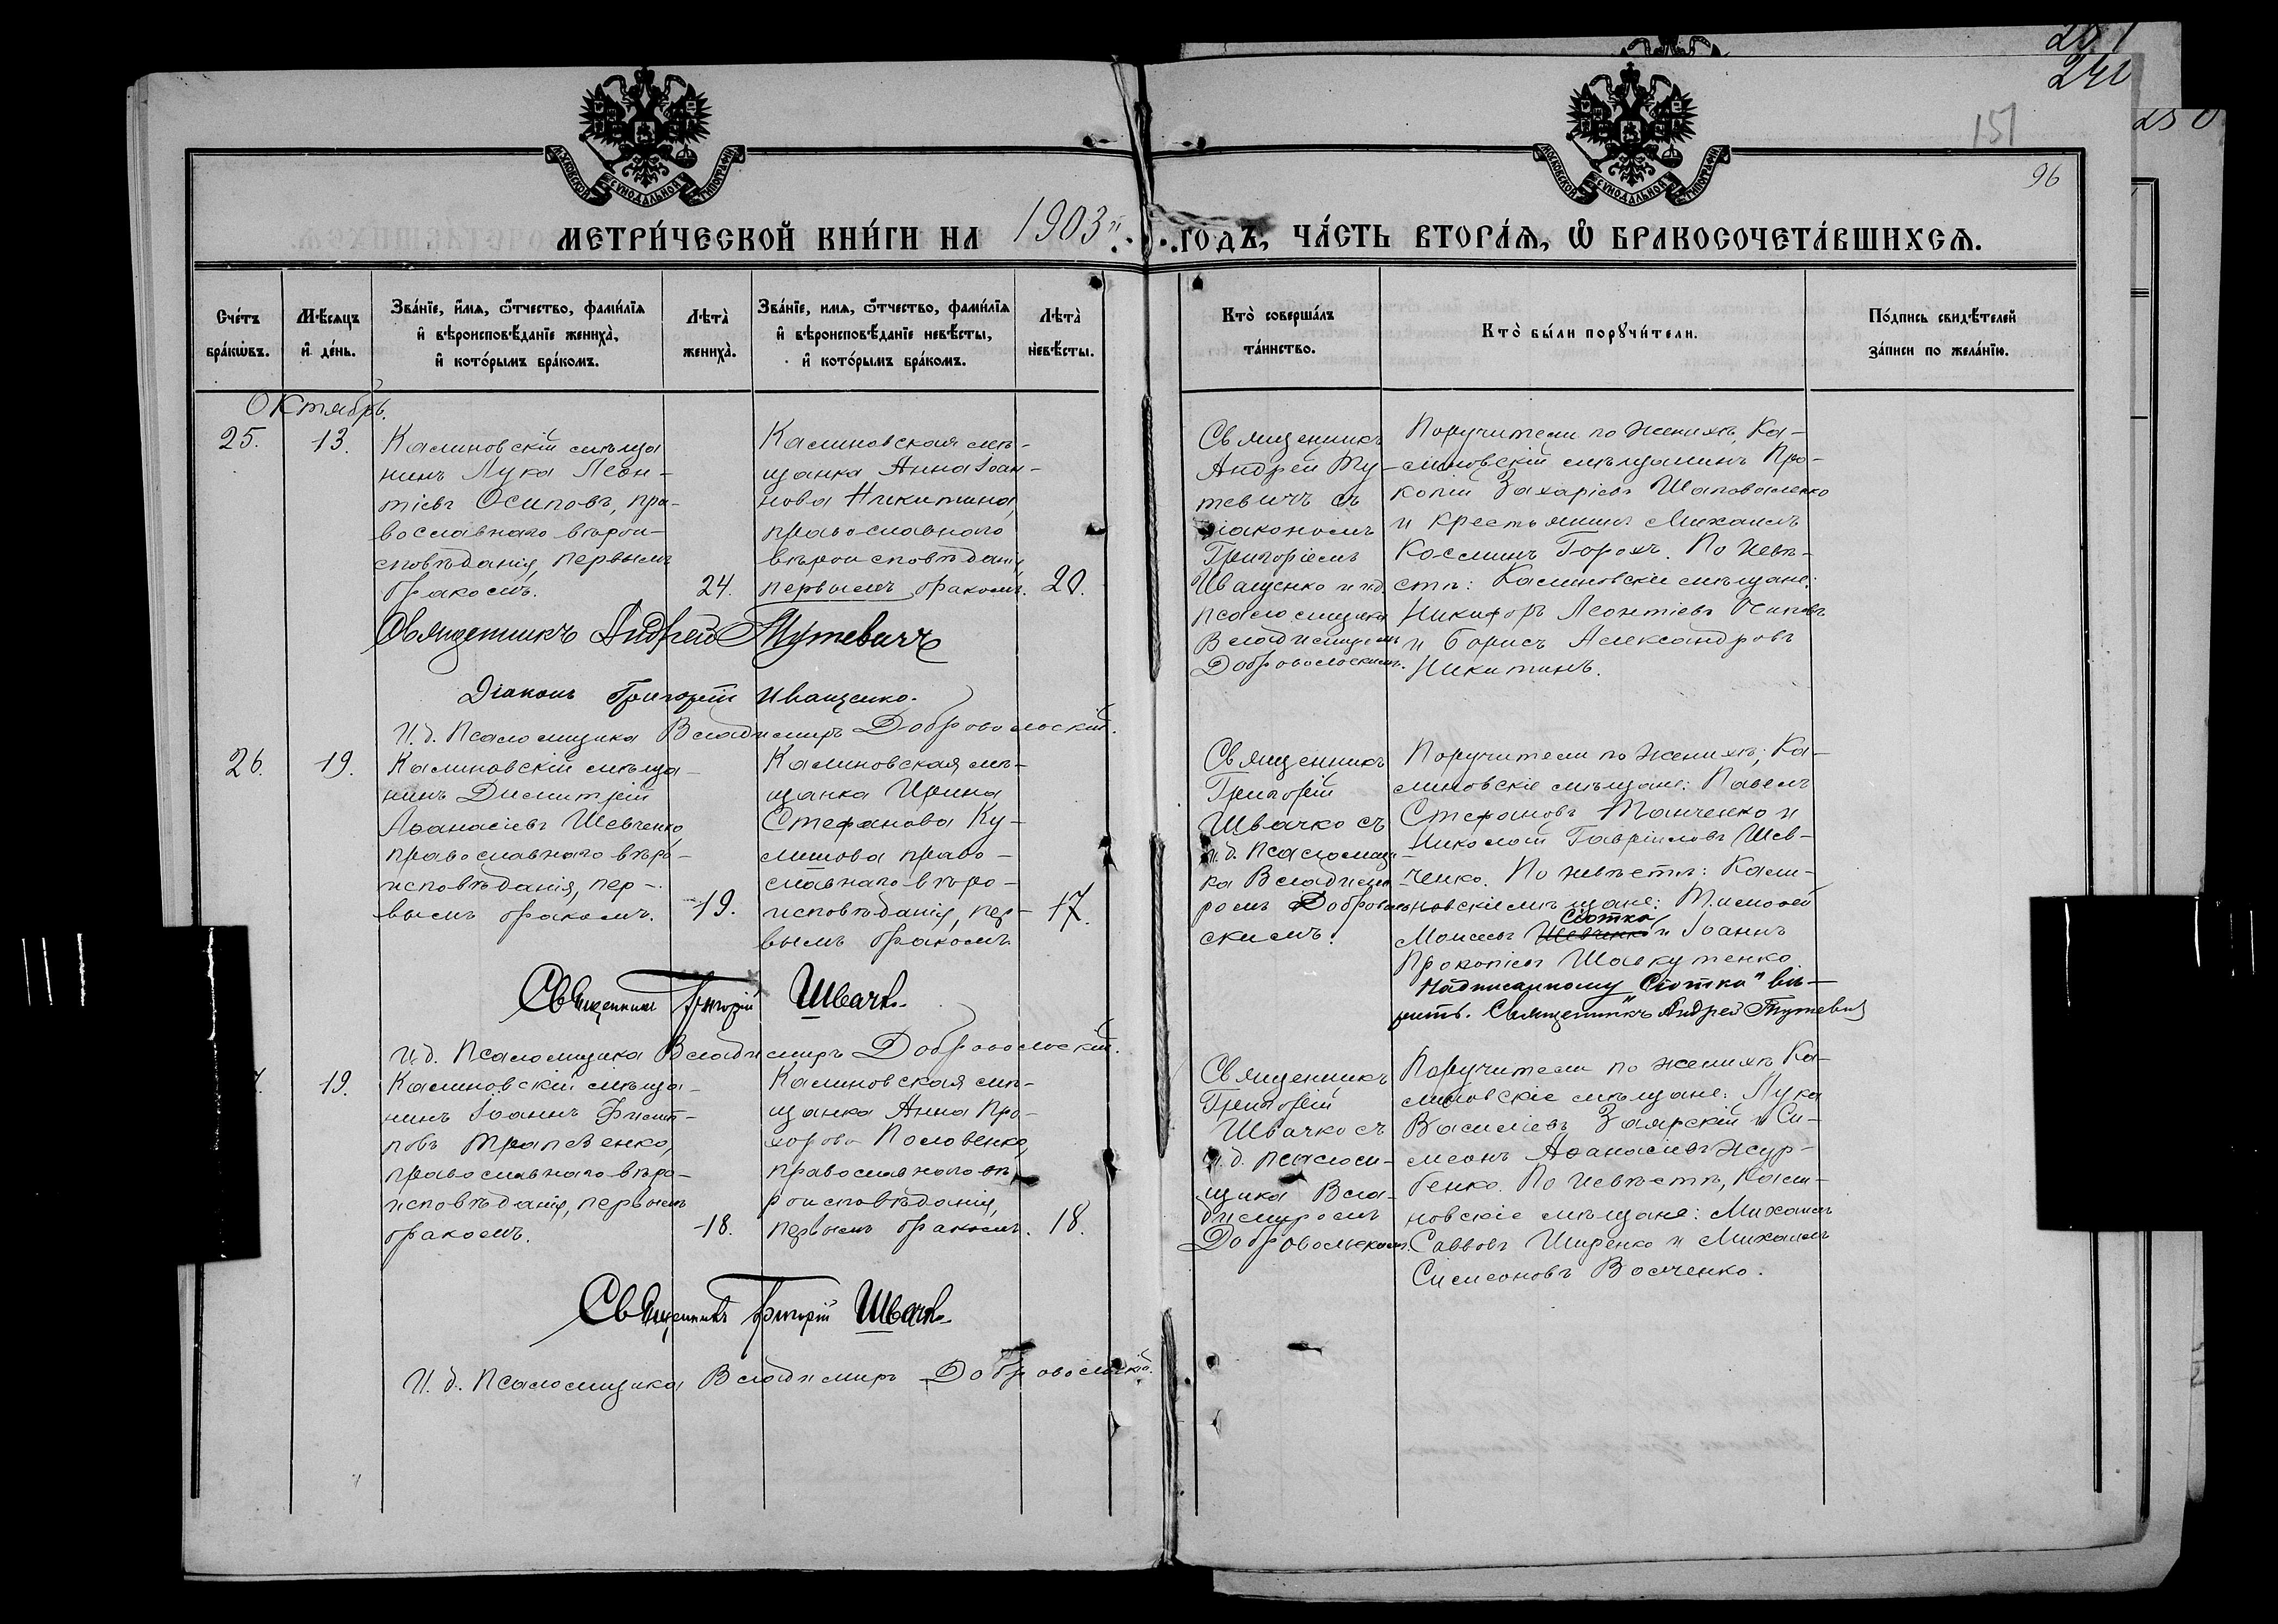 251
241
250
151
96
МОСКОВСКОЙ СѴНОДАЛЬНОЙ ТИПОГРАФІИ
МОСКОВСКОЙ СѴНОДАЛЬНОЙ ТИПОГРАФІИ
МЕТРИ́ЧЕСКОЙ КНИ́ГИ НА 1903й ГОДЪ, ЧА́СТЬ ВТОРА́Ѧ, Ѽ БРАКОСОЧЕТА́ВШИХСѦ.
Сче́тъ бра́кѡвъ.
Мѣ́сяцъ и҆ де́нь.
Зва́нїе, и҆́мѧ, ѻ҆́тчество, фами́лїѧ и҆ вѣроисповѣ́данїе жениха̀, и҆ кото́рымъ бра́комъ.
Лѣта̀ жениха̀.
Зва́нїе, имѧ, ѻ҆́тчество, фами́лїѧ и҆ вѣроисповѣ́данїе невѣ́сты, и҆ кото́рымъ бра́комъ.
Лѣта̀ невѣ́сты.
Кто̀ соверша́лъ та́инство.
Кто̀ бы́ли порꙋчи́тели.
По́дпись свидѣ́телей за́писи по жела́нїю.
Октябрь.
25.
13.
Калиновскій мѣща
нинъ Лука Леон-
тіевъ Осиповъ, пра-
вославнаго вѣрои-
сповѣданія, первымъ
бракомъ.
24.
Калиновская мѣ-
щанка Анна Іоан-
нова Никитина,
православнаго
вѣроисповѣданія,
первымъ бракомъ.
20.
Священникъ
Андрей Ту-
тевичъ съ
діакономъ
Григоріемъ
Иващенко и и.д.
псаломщика
Владиміромъ
Добровольскимъ.
Поручители по женихѣ, Ка-
линовскій мѣщанинъ Про-
копій Захаріевъ Шаповаленко
и крестьянинъ Михаилъ
Косминъ Горохъ. По невѣ-
стѣ: Калиновскіе мѣщане:
Никифоръ Леонтіевъ Осиповъ
и Борисъ Александровъ
Никитинъ.
Священникъ Андрей Тутевичъ
Діаконъ Григорій Иващенко.
И. д. Псаломщика Владиміръ Добровольскій.
26.
19.
Калиновскій мѣща-
нинъ Димитрій
Аѳанасіевъ Шевченко
православнаго вѣро-
исповѣданія, пер-
вымъ бракомъ.
19.
Калиновская мѣ-
щанка Ирина
Стефанова Ку-
лишова право-
славнаго вѣро-
исповѣданія, пер-
вымъ бракомъ.
17.
Священникъ
Григорій
Швачко съ
и. д. псаломщи-
ка Владимі-
ромъ Доброволь
скимъ.
Поручители по женихѣ; Ка-
линовскіе мѣщане: Павелъ
Стефановъ Танченко и
Николай Гавріиловъ Шев-
ченко. По невѣстѣ: Кали-
новскіе мѣщане: Тимоѳей
Сютка
Моисеевъ Шевченко и Іоаннъ
Прокопіевъ Шавкутенко.
Надписанному "Сютка" вѣ-
рить. Священникъ Андрей Тутевичъ
Священникъ Григорій Швачко.
И. д. Псаломщика Владиміръ Добровольскій.
19.
Калиновскій мѣща-
нинъ Іоаннъ Филип-
повъ Трапезенко,
православнаго вѣро-
исповѣданія, первымъ
бракомъ.
18.
Калиновская мѣ-
щанка Анна Про-
хорова Половенко,
православнаго вѣ-
роисповѣданія,
первымъ бракомъ.
18.
Священникъ
Григорій
Швачко съ
и. д. псаломи-
щика Вла-
диміромъ
Добровольскимъ.
Поручители по женихѣ Ка-
линовскіе мѣщане: Лука
Василіевъ Заярскій и Си-
меонъ Аѳанасіевъ Жур-
бенко. По невѣстѣ, Кали-
новскіе мѣщане: Михаилъ
Саввовъ Ширенко и Михаилъ
Симеоновъ Волченко.
Священникъ Григорій Швачко.
И. д. Псаломщика Владиміръ Добровольскій.